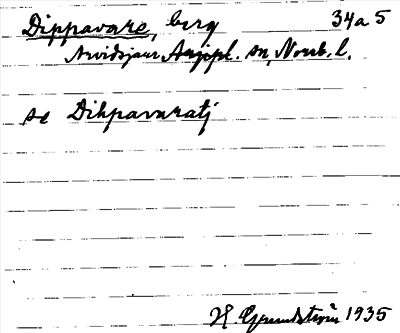 Dippavare, berg 34a5
Arvidsjaur Arjepl. sn, Norrb. l.
se Dihpavaratj
H. Grundström 1935